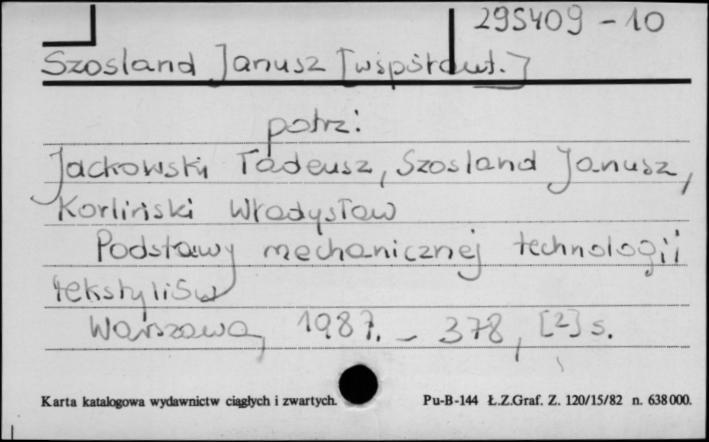 295409-10
Szosland Janusz [współaut.]
patrz:
Jackowski Tadeusz, Szosland Janusz,
Korliński Władysław
Podstawy mechanicznej technologii
tekstyliów
Warszawa, 1987. - 378, [2] s.
Karta katalogowa wydawnictw ciągłych i zwartych.
Pu-B-144 Ł.Z.Graf. Z. 120/15/82 n. 638000.